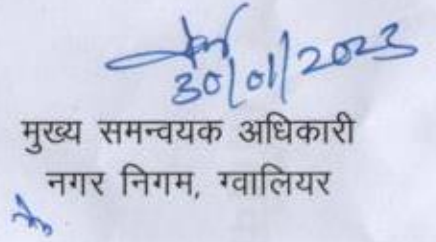 30/01/2023
मुख्य समन्वयक अधिकारी
नगर निगम, ग्वालियर